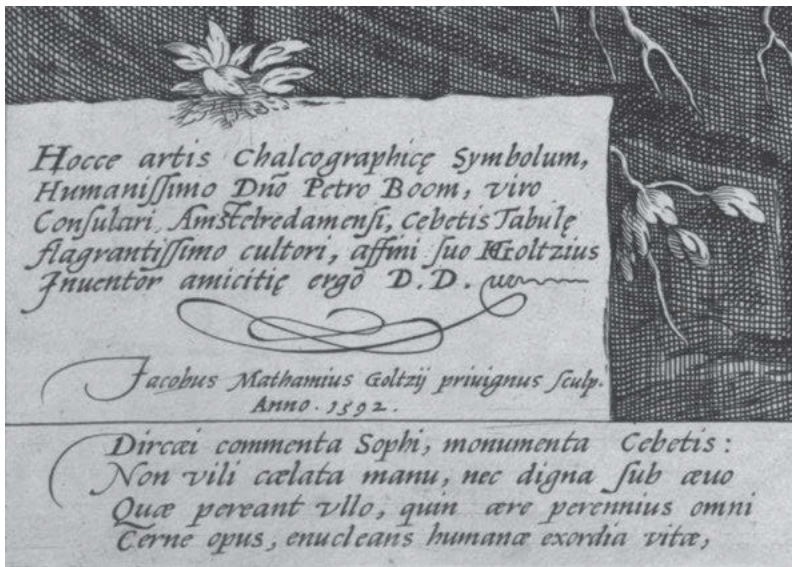 Hocce artis Chalcographicę Symbolum,
Humaniſſimo Dno͂ Petro Boom, viro
Conſulari, Amſtelredamenſi, Cebetis Tabulę
flagrantiſſimo cultori, affini ſuo HGoltzius
Inuentor amicitię ergo D.D.
Jacobus Mathamius Goltzij priuignus ſculp.
Anno. 1592.
Dircæi commenta Sophi, monumenta Cebetis:
Non vili cælata manu, nec digna ſub æuo
Quæ pereant vllo, quin ære perennius omni
Cerne opus, enucleans humanæ exordia vitæ,